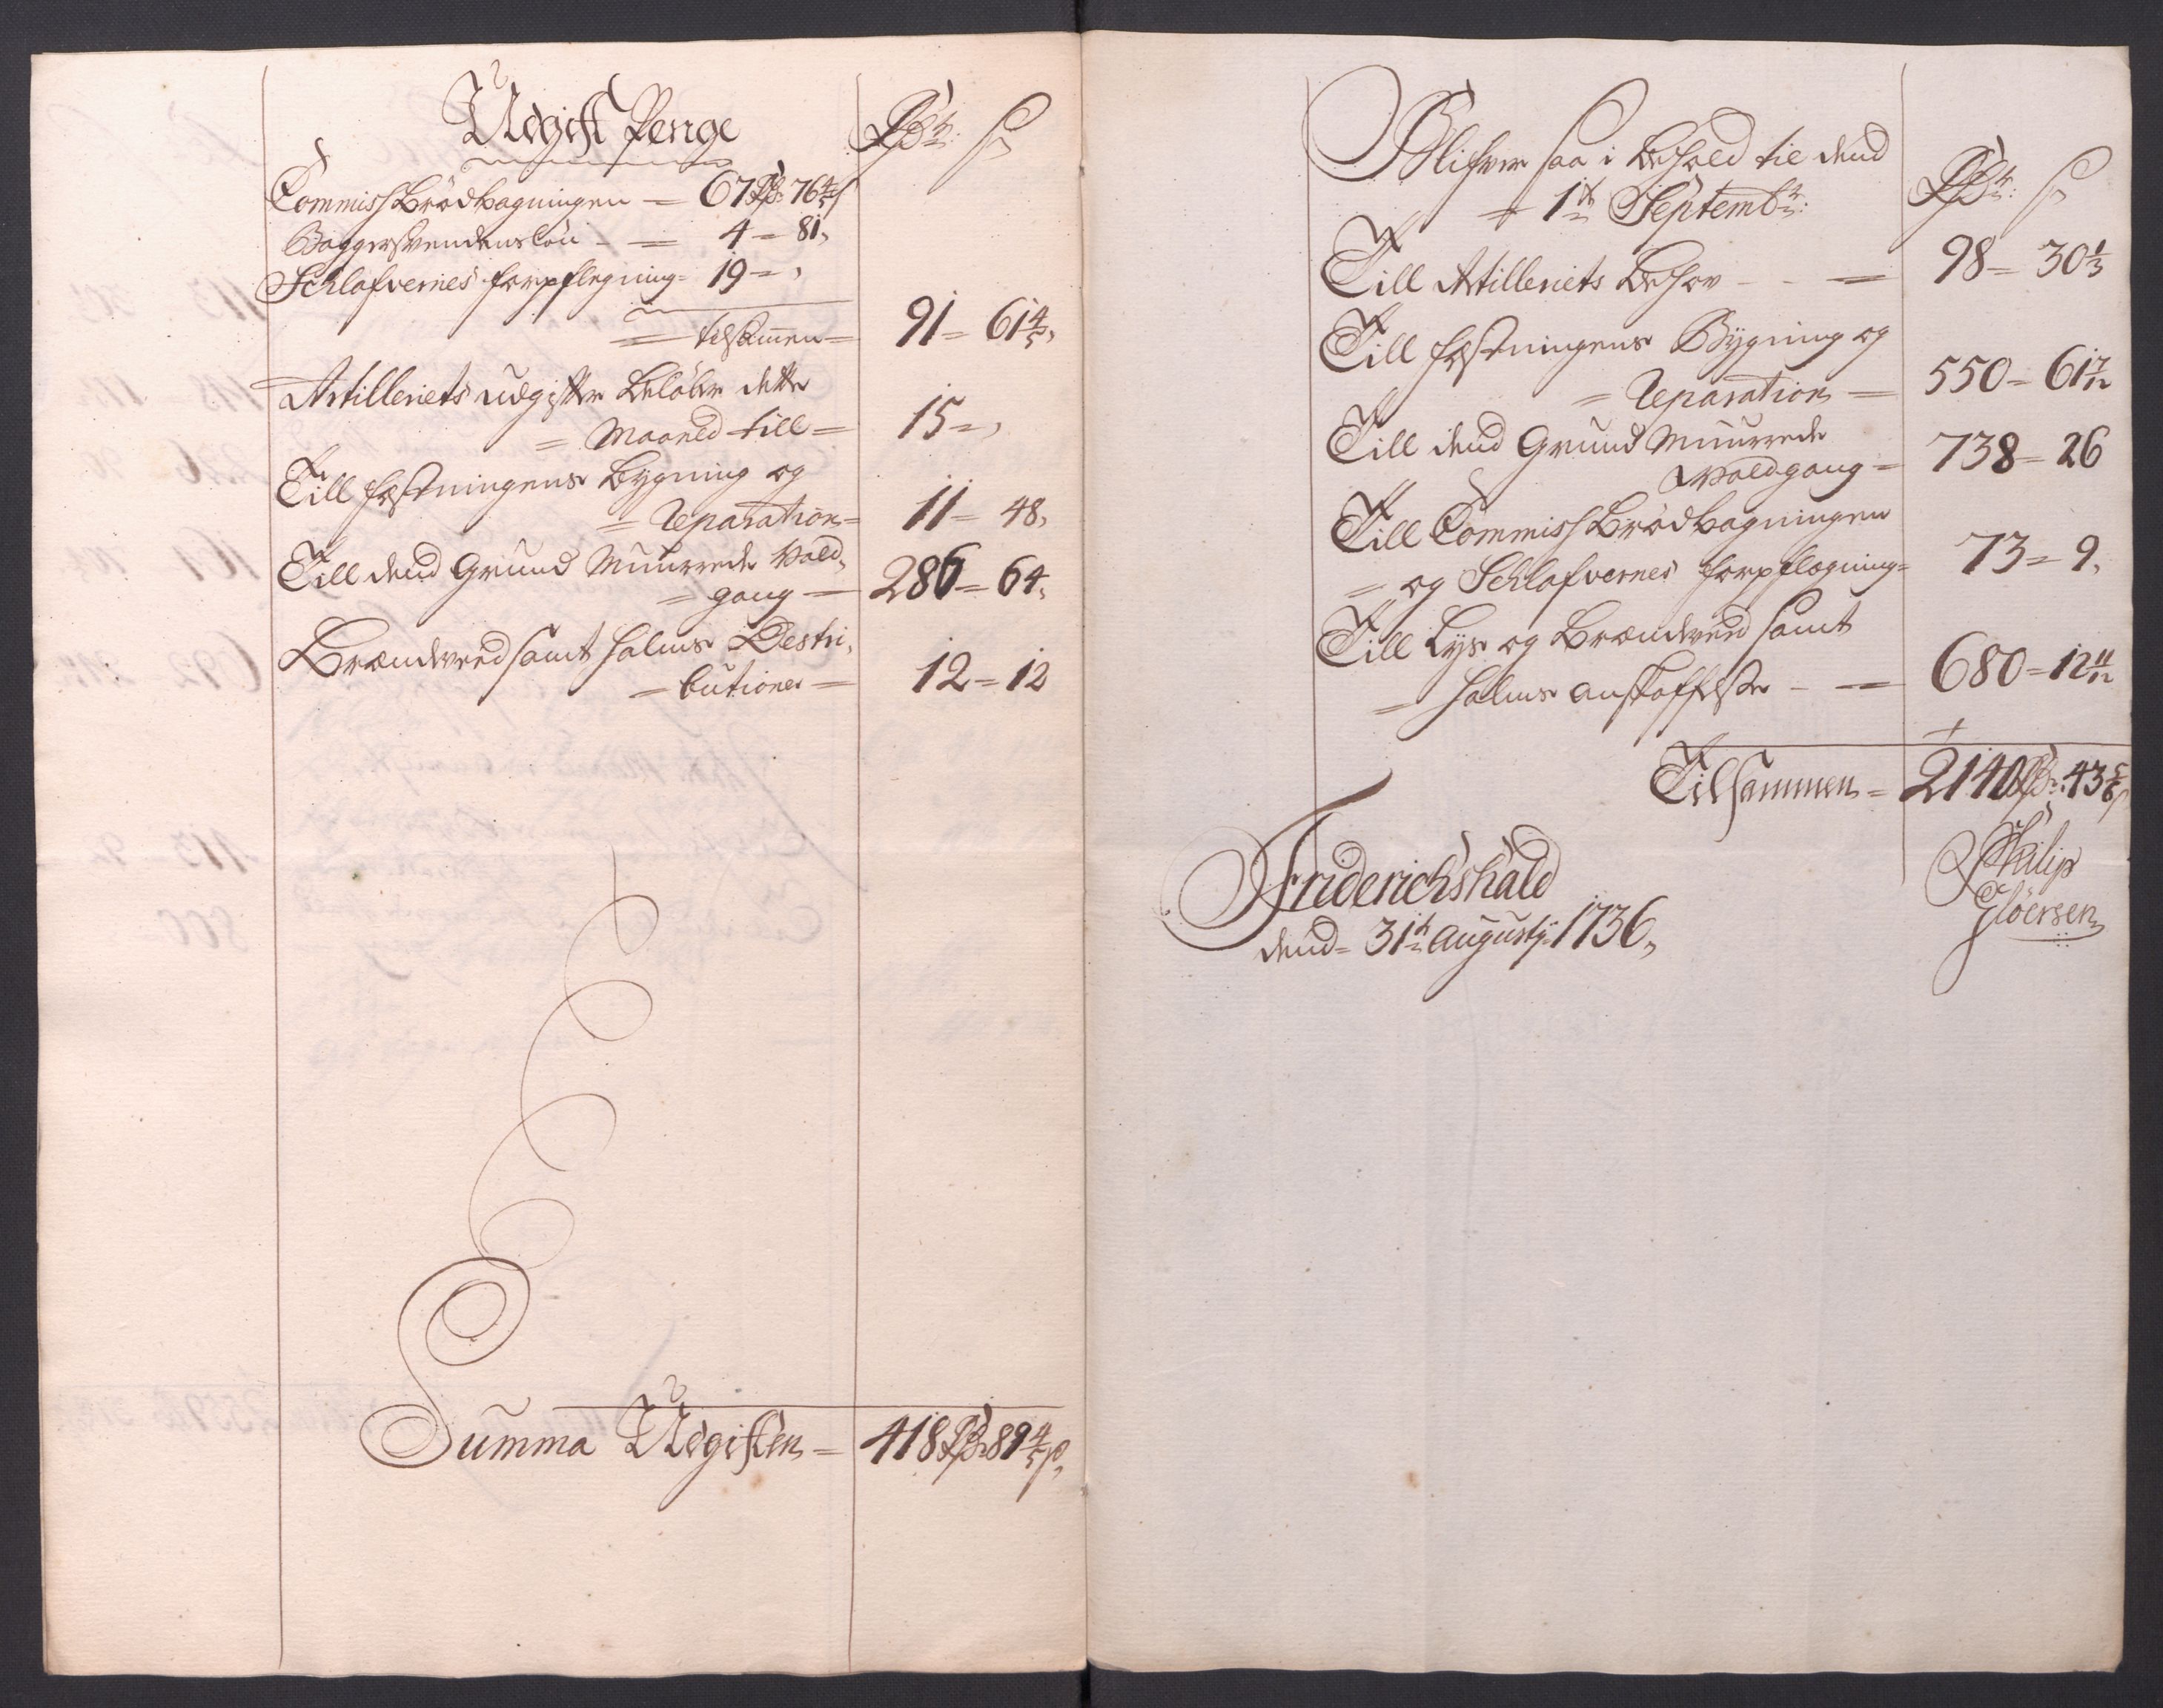 Udgift Penge
Rdr: ß
CommissBrødbagningen = 67 Rd: 76 4/5 ß
Baggersvendens løn - = 4 = 81,
Schlafvernes forpflegning = 19 = ,
= tilsamen = 91 = 61 4/5,
Artilleriets udgifter beløber dette
= Maaned till = 15 = ,
Till Fæstningens bygning og
= Reparation = 11 = 48,
Till dend Grund Muurede Vold,
= gang = 286 = 64,
Brændeveed samt halms Destri,
= butioner = 12 = 12
Summa Udgiften = 418 Rd: 89 4/5 ß,
Blifver saa i behold til dend
1te Septembr:
Rdr: ß
Till Artilleriets behov - - = 98 = 30 1/3
Till Fæstningens Bygning og
= Reparation = 550 = 61 7/12
Till dend Grund Muurrede
Voldgang = 738 = 26
Till CommissBrødbagningen
= og Schlafvernes forpflægning = 73 = 9,
Till Lys og Brændeveed samt
= halms anskaffelse - = 680 = 12 11/12
Tilsammen = 2140 Rd: 43 5/6 ß
Friderichshald
dend = 31te Augustj: 1736,
Philip
Gløersen